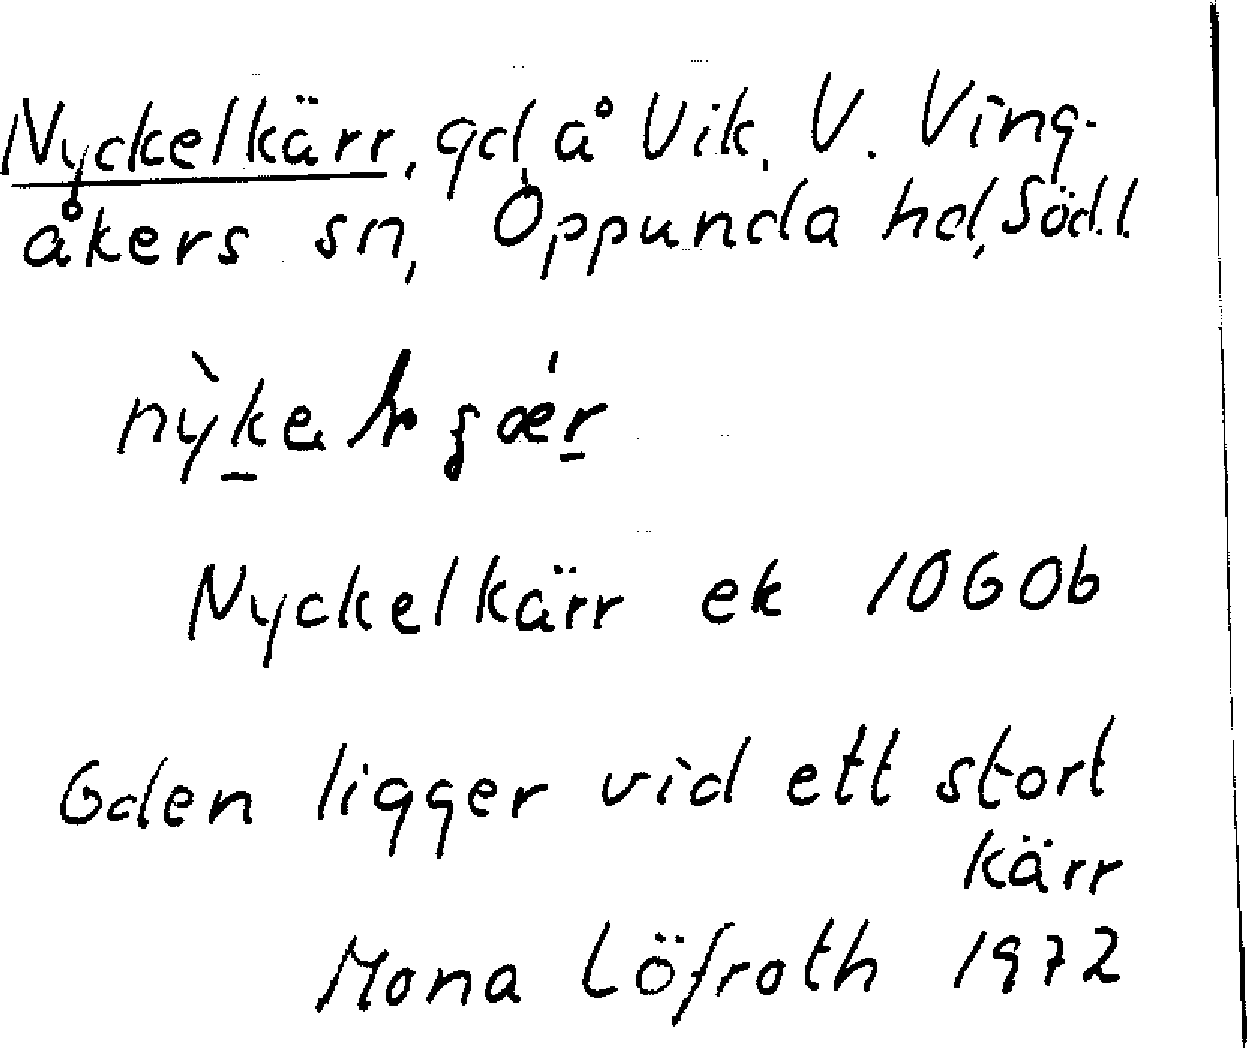 Nyckelkärr, gd å Vik, V. Ving-
åkers sn, Oppunda hd, Södl.
Nyckelkärr ek 10G0b
Gden ligger vid ett stort
kärr
Mona Löfroth 1972